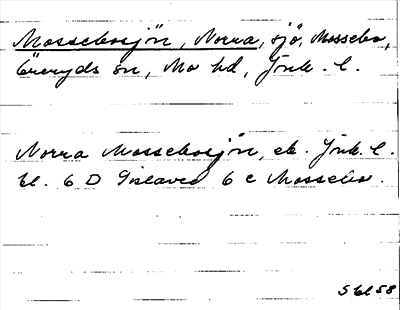 Mossebosjön, Norra, sjö, Mossebo,
Öreryds sn, Mo hd, Jönk. l.
Norra Mossebosjön, ek. Jönk. l.
bl. 6 D Gislaved 6 c Mossebo.
5 bl 58